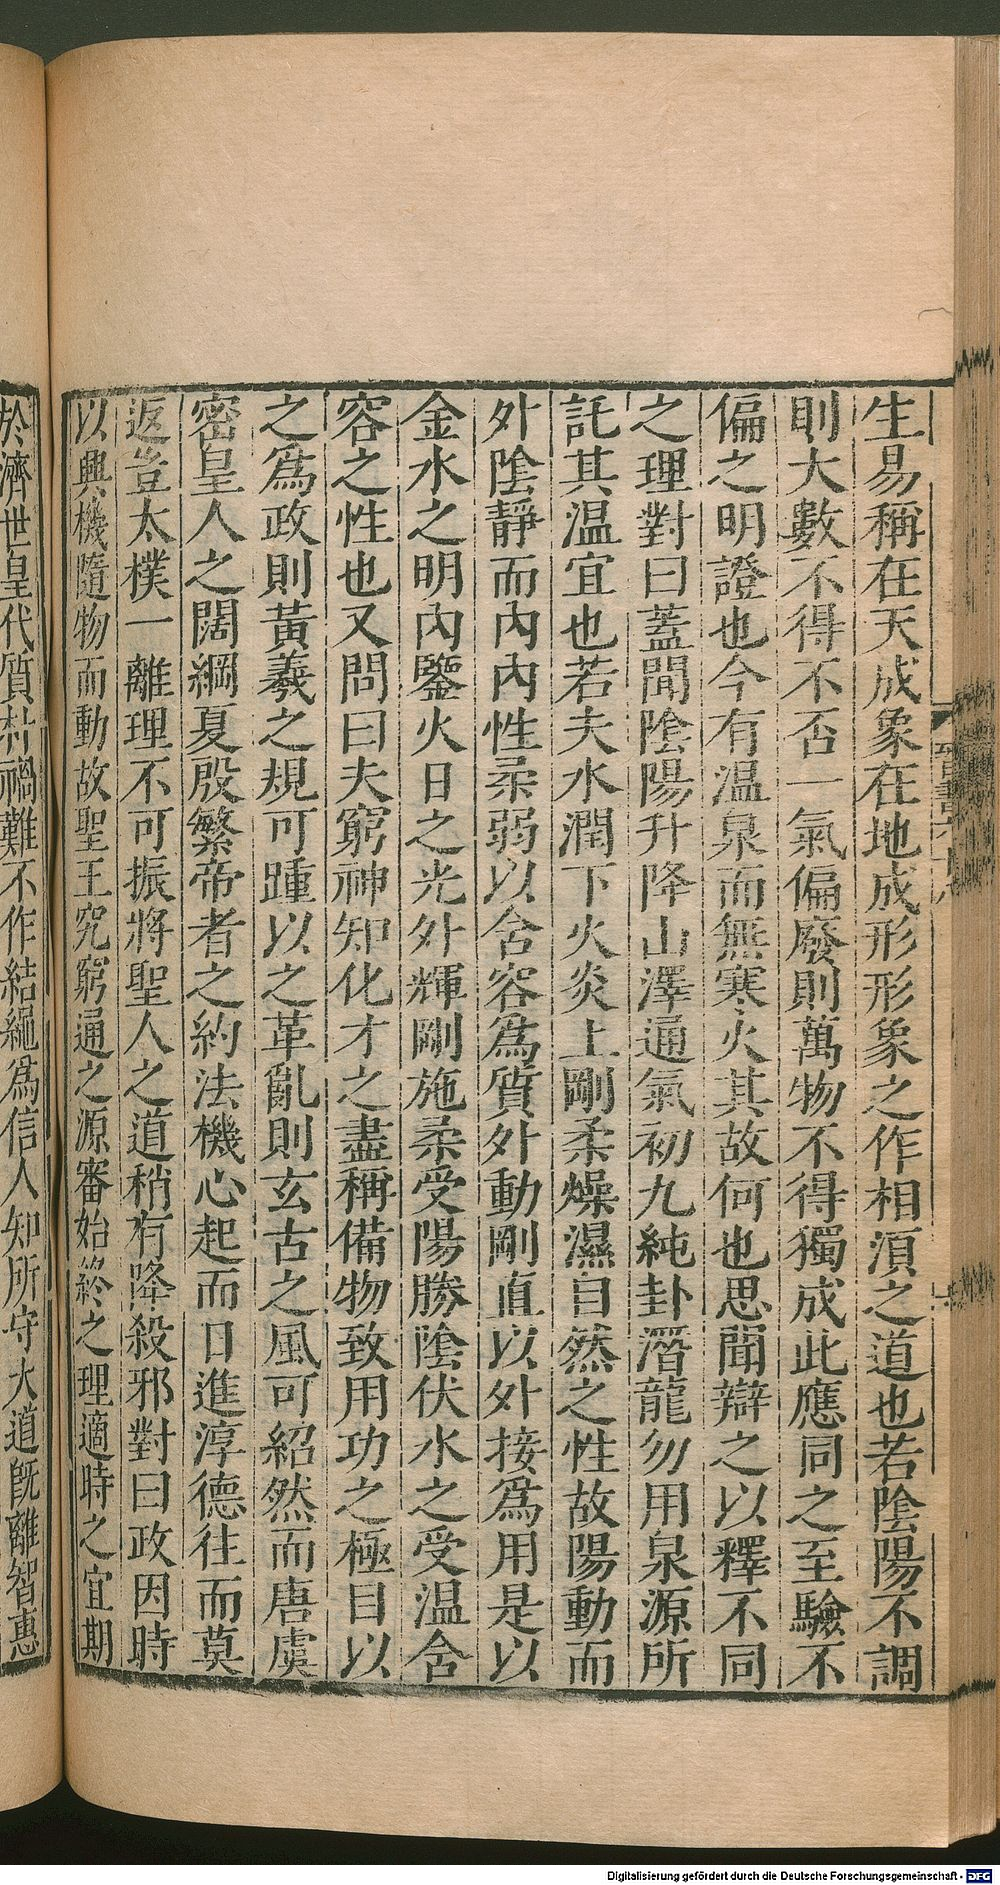 生易稱在天成象在地成形形象之作相須之道也若陰陽不調
則大數不得不否一氣偏廢則萬物不得獨成此應同之至驗不
偏之明證也今有温泉而無寒火其故何也思聞辯之以釋不同
之理對曰蓋聞陰陽升降山澤通氣初九純卦潛龍勿用泉源所
託其温宜也若夫水潤下火炎上剛柔燥濕自然之性故陽動而
外陰靜而內內性柔弱以含容爲質外動剛直以外接爲用是以
金水之明內鑒火日之光外輝剛施柔受陽勝陰伏水之受温含
容之性也又問曰夫窮神知化才之盡稱備物致用功之極目以
之爲政則黃羲之規可踵以之革亂則玄古之風可紹然而唐虞
密皇人之闊綱夏殷繁帝者之約法機心起而日進淳德往而莫
返豈太樸一離理不可振將聖人之道稍有降殺邪對曰政因時
以興機隨物而動故聖王究窮通之源審始終之理適時之宜期
於濟世皇代質朴禍難不作結繩為信人知所守大道旣離智惠
Digitalisierung gefördert durch die Deutsche Forschungsgemeinschaft - DFG